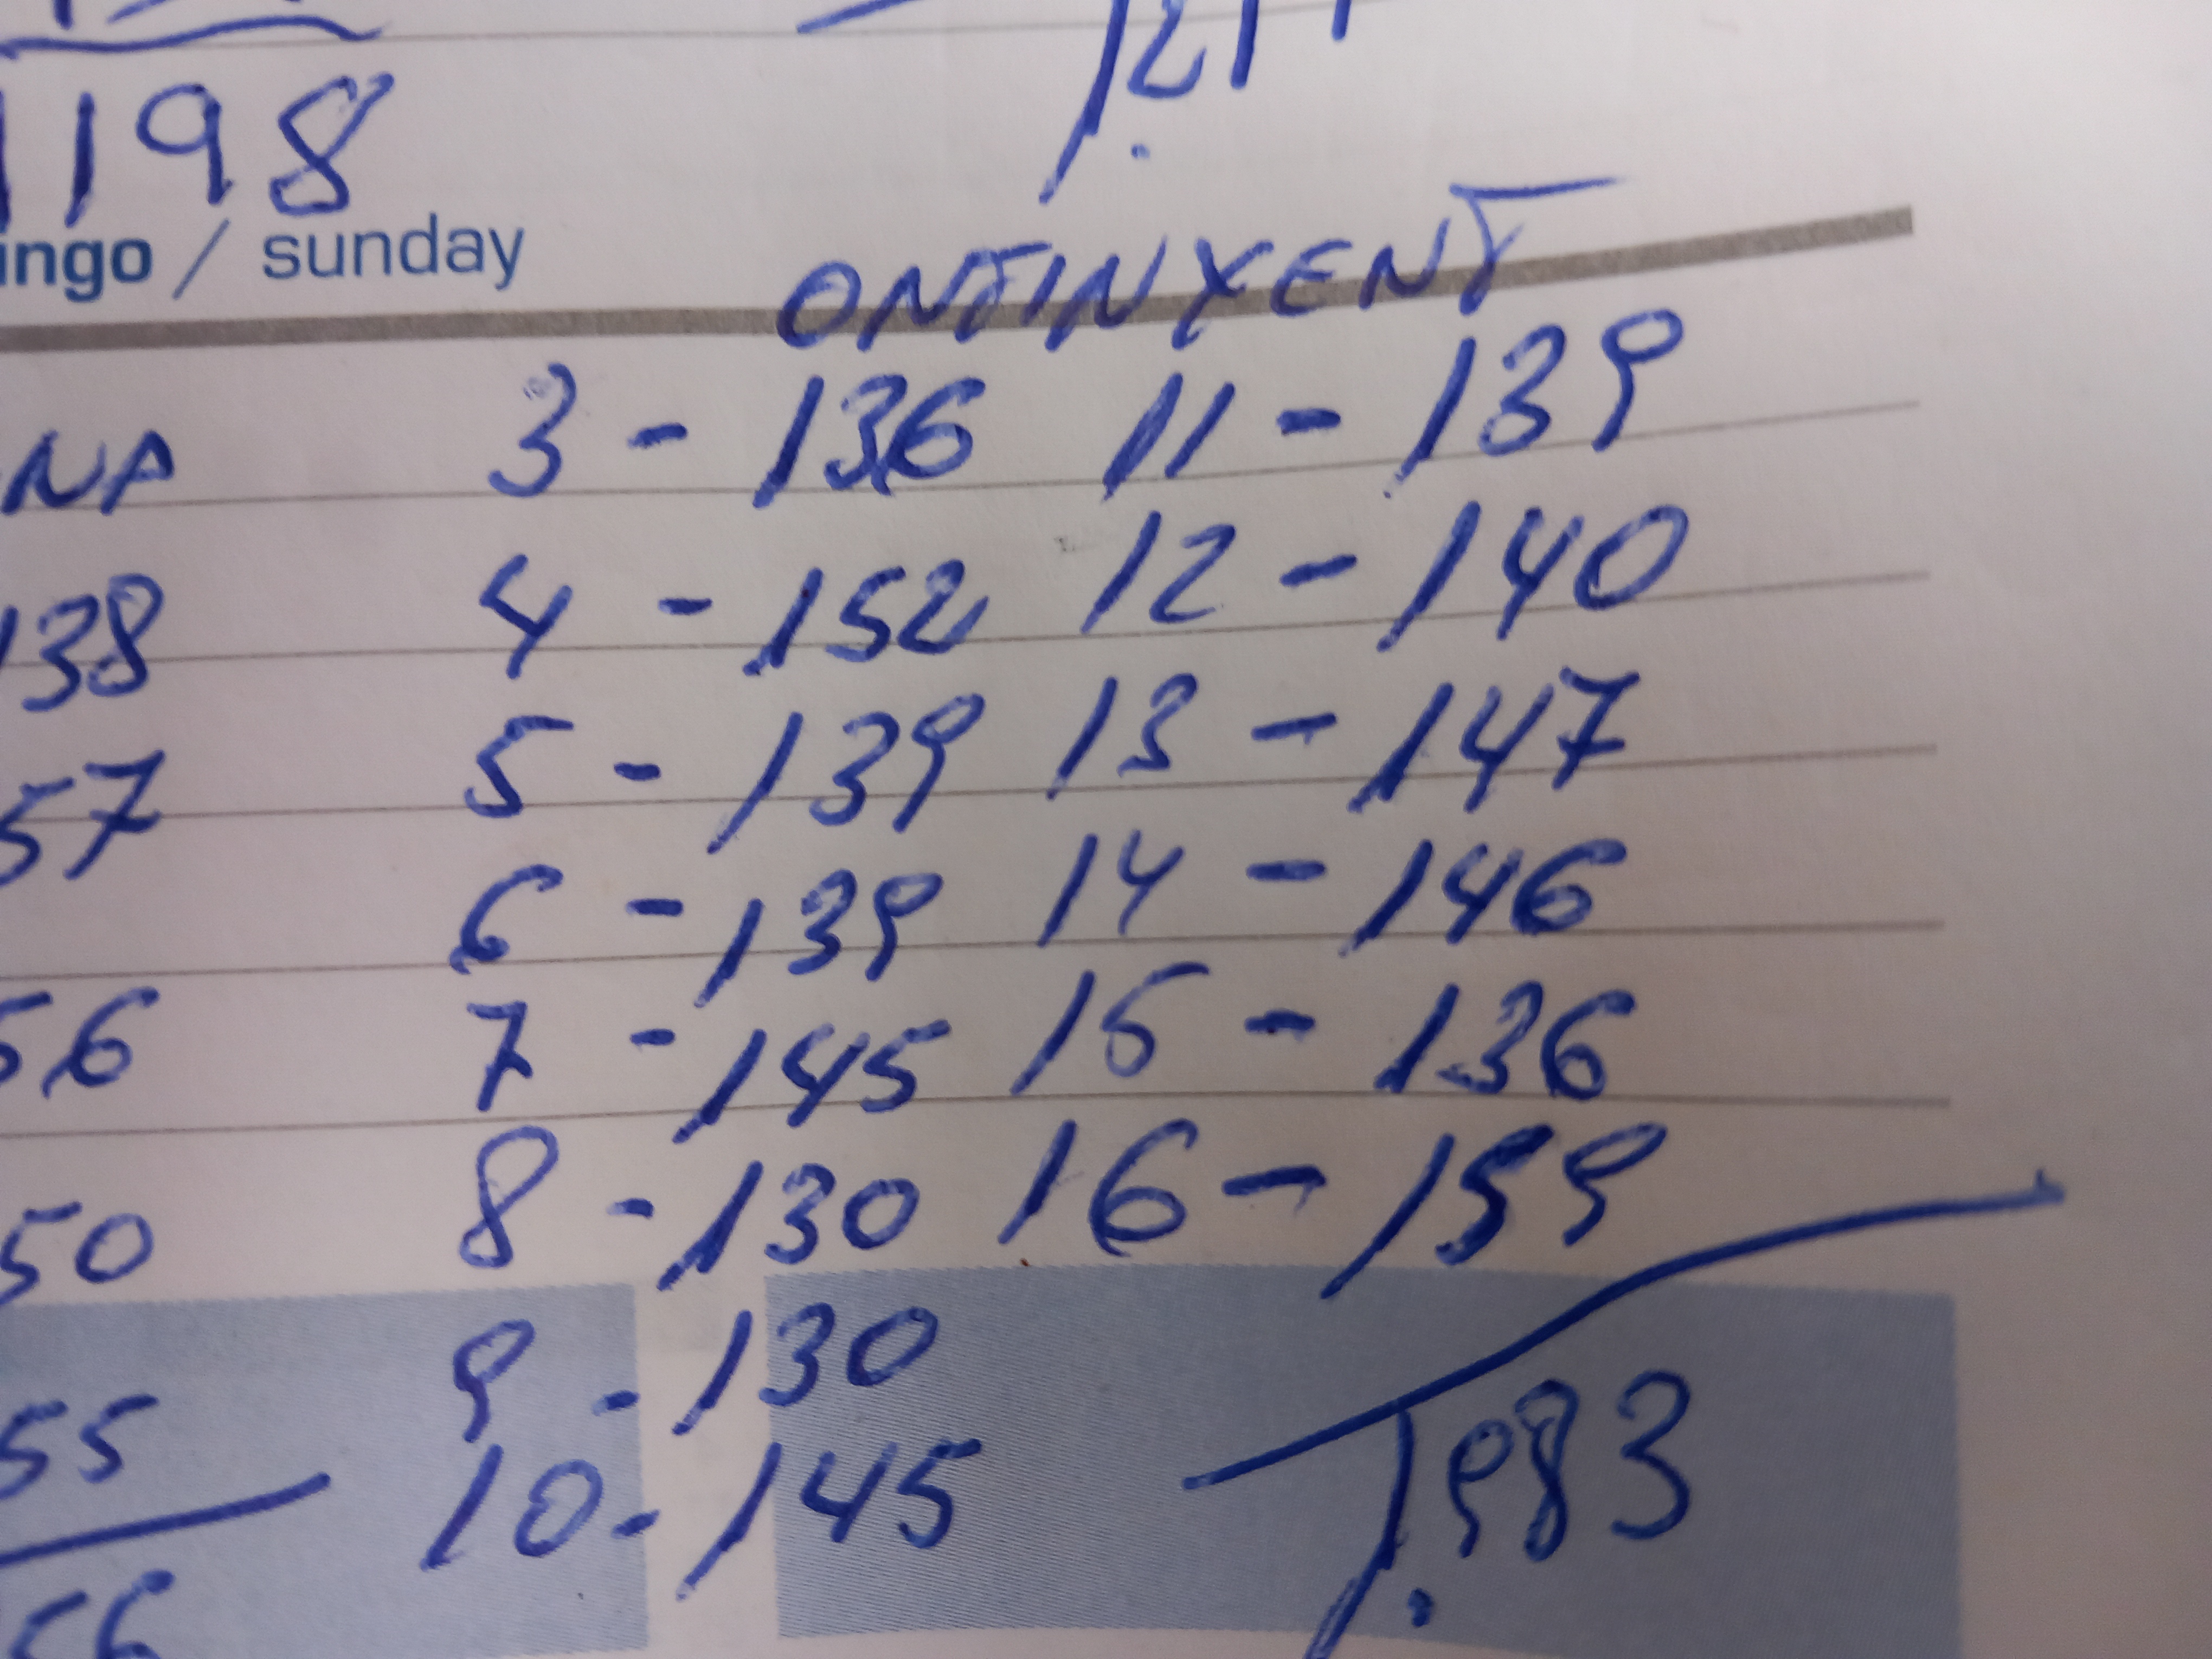 1198
ingo / sunday
ONTINYENT
NA 3 - 136 11 - 139
138 4 - 152 12 - 140
57 5 - 139 13 - 147
6 - 139 14 - 146
56 7 - 145 15 - 136
50 8 - 130 16 - 159
9 - 130
55 10 - 145 1.983
56